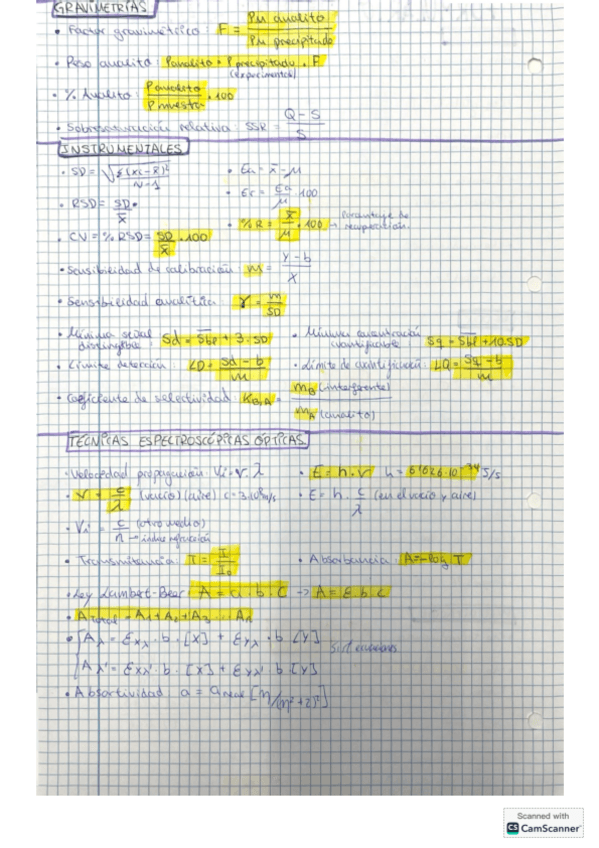 GRAVIMETRÍAS
• Factor gravimétrico: F = Pm analito / Pm precipitado
• Peso analito: Panalito = Pprecipitado · F
(experimental)
• % Analito: Panalito / Pmuestra · 100
• Sobresaturación relativa SSR = Q - S / S
INSTRUMENTALES
• SD = √Σ(xi - x̄)² / N-1 • Ea = x̄ - μ
• RSD = SD / x̄ • Er = Ea / μ · 100
• CV = % RSD = SD / x̄ · 100 • %R = x̄ / μ · 100 → Porcentaje de recuperación
• Sensibilidad de calibración m = y - b / x
• Sensibilidad analítica γ = m / SD
• Mínima señal distinguible Sd = S̄bl + 3 · SD • Mínima concentración cuantificable Sq = S̄bl + 10 · SD
• Límite detección: LD = Sd - b / m • Límite de cuantificación: LQ = Sq - b / m
• Coeficiente de selectividad: KB,A = mB (interferente) / mA (analito)
TÉCNICAS ESPECTROSCÓPICAS ÓPTICAS
• Velocidad propagación Vi = ν · λ • E = h · ν h = 6'626 · 10⁻³⁴ J/s
• ν = c / λ (vacío) (aire) c = 3·10⁸ m/s • E = h · c / λ (en el vacío y aire)
• Vi = c / n (otro medio)
→ índice refracción
• Transmitancia: T = I / I₀ • Absorbancia: A = -log T
• Ley Lambert-Beer: A = a · b · C → A = ε b c
• A total = A1 + A2 + A3 ... An
• Aλ = εxλ · b · [x] + εyλ · b [y]
Aλ' = εxλ' · b · [x] + εyλ' · b [y]
• Absortividad: a = a real [n/(n²+2)²]
Scanned with
CS CamScanner